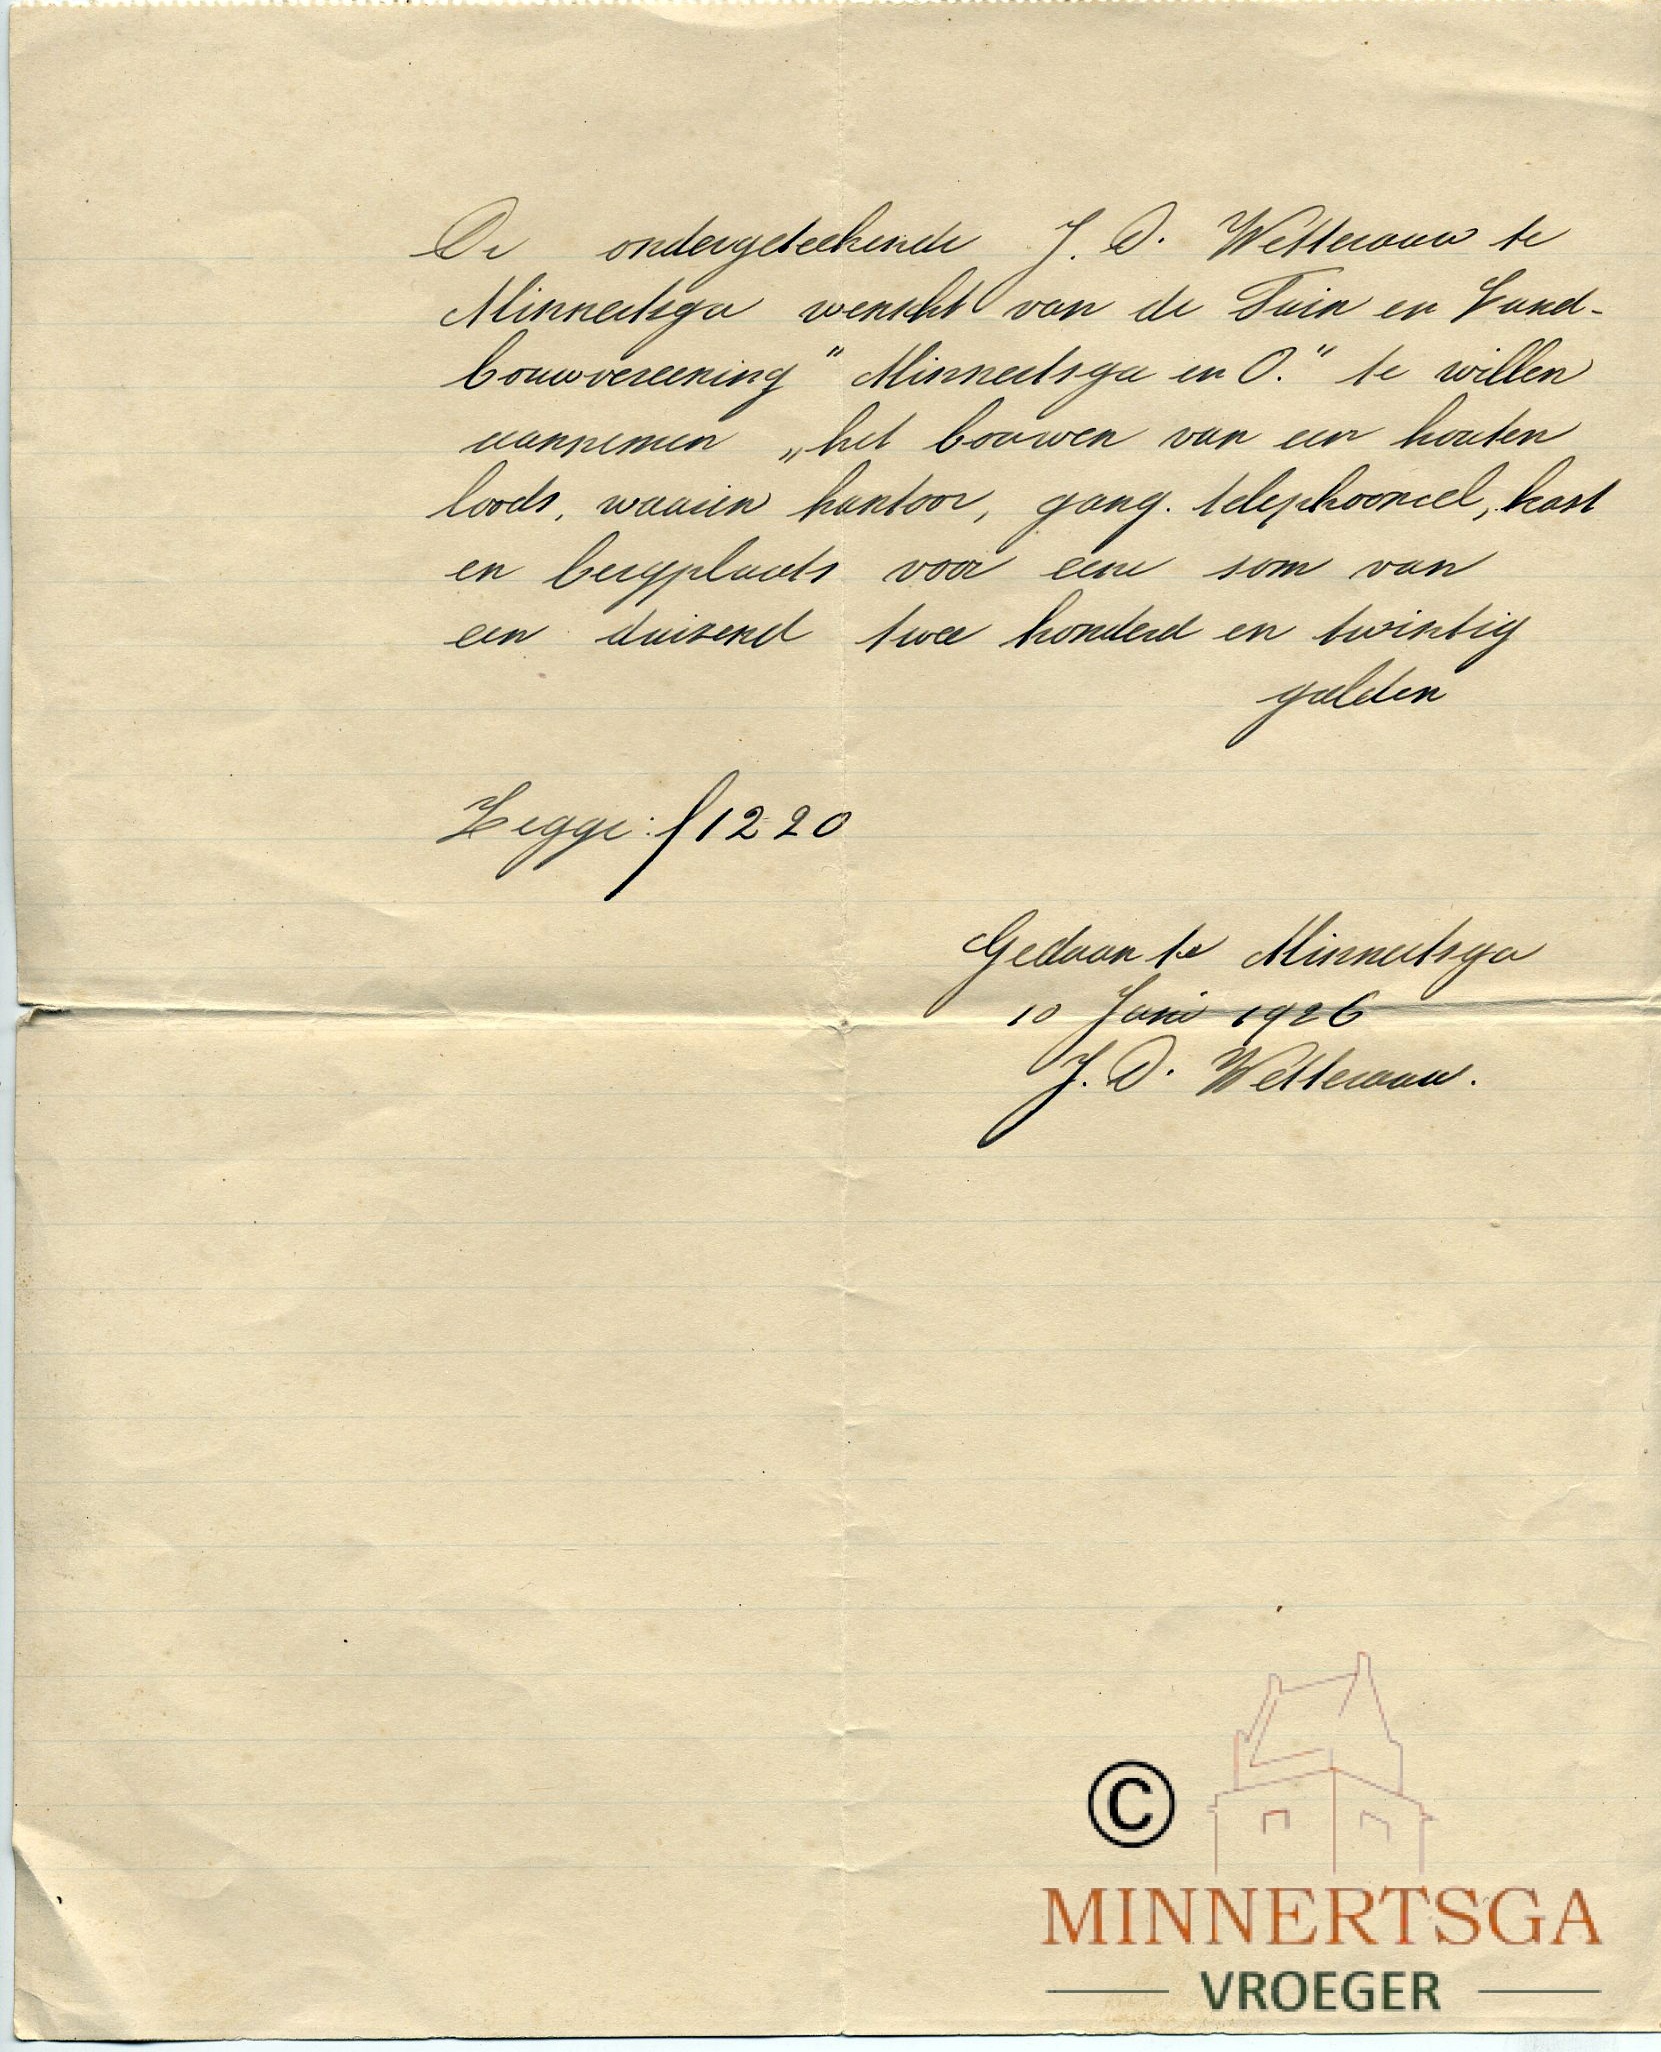 De ondergeteekende J. D. Wetterauw te
Minnertsga wenscht van de Tuin en Land-
bouwvereening " Minnertsga en O." te willen
aannemen „het bouwen van een houten
loods, waarin kantoor, gang. telephooncel, kast
en bergplaats voor eene som van
een duizend twee honderd en twintig
gulden
Zegge: f 1220
Gedaan te Minnertsga
10 Juni 1926
J. D. Wetterauw.
©
MINNERTSGA
VROEGER